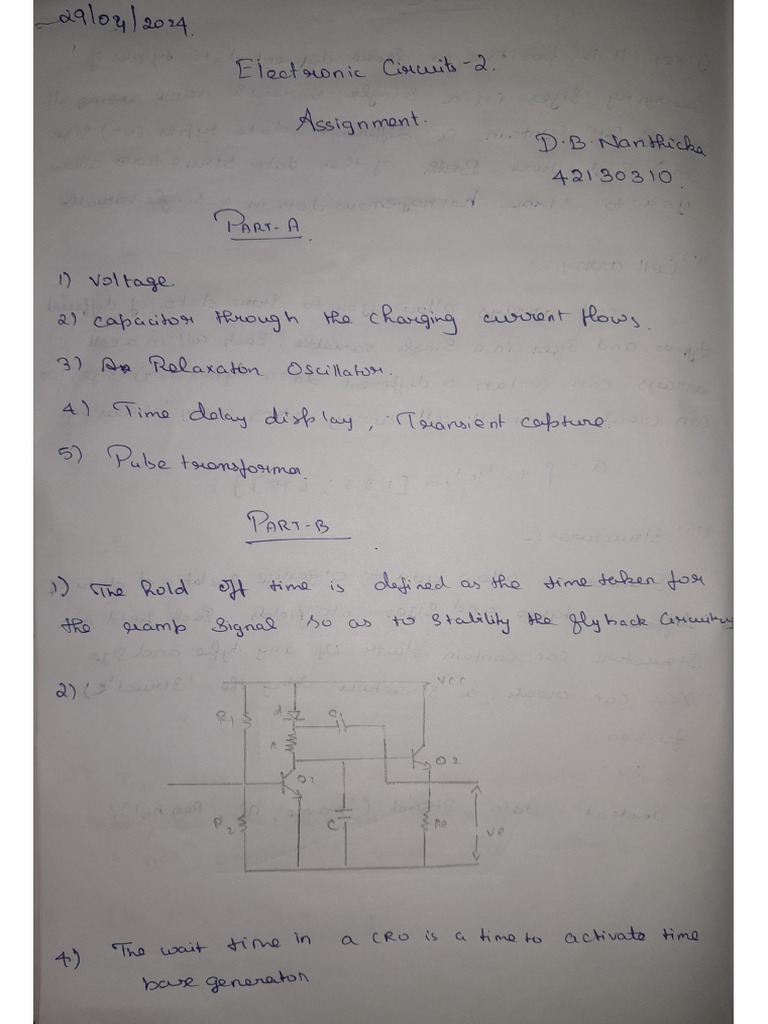 29/04/2024.
Electronic Circuits-2.
Assignment.
D.B Nanthicka
42130310.
PART-A
1) Voltage.
2) capacitor through the charging current flows.
3) Relaxaton Oscillator.
4) Time delay display, Transient capture.
5) Pulse transforma.
PART-B
1) The hold off time is defined as the time taken for
the ramp signal so as to stability the flyback Circuitry
2)
VCC
R1
d
C1
R
Q1
Q2
R2
C
Re
4) The wait time in a CRO is a time to activate time
base generator